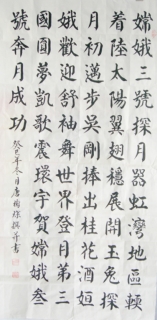 嫦娥三號探月器虹灣地區頓
着陸太陽翼翅穩展開玉兔探
月初邁步吳剛捧出桂花酒姮
娥歡迎舒袖舞世界登月第三
國圓夢凱歌震環宇賀嫦娥叁
號奔月成功
癸巳年冬月唐撰并書